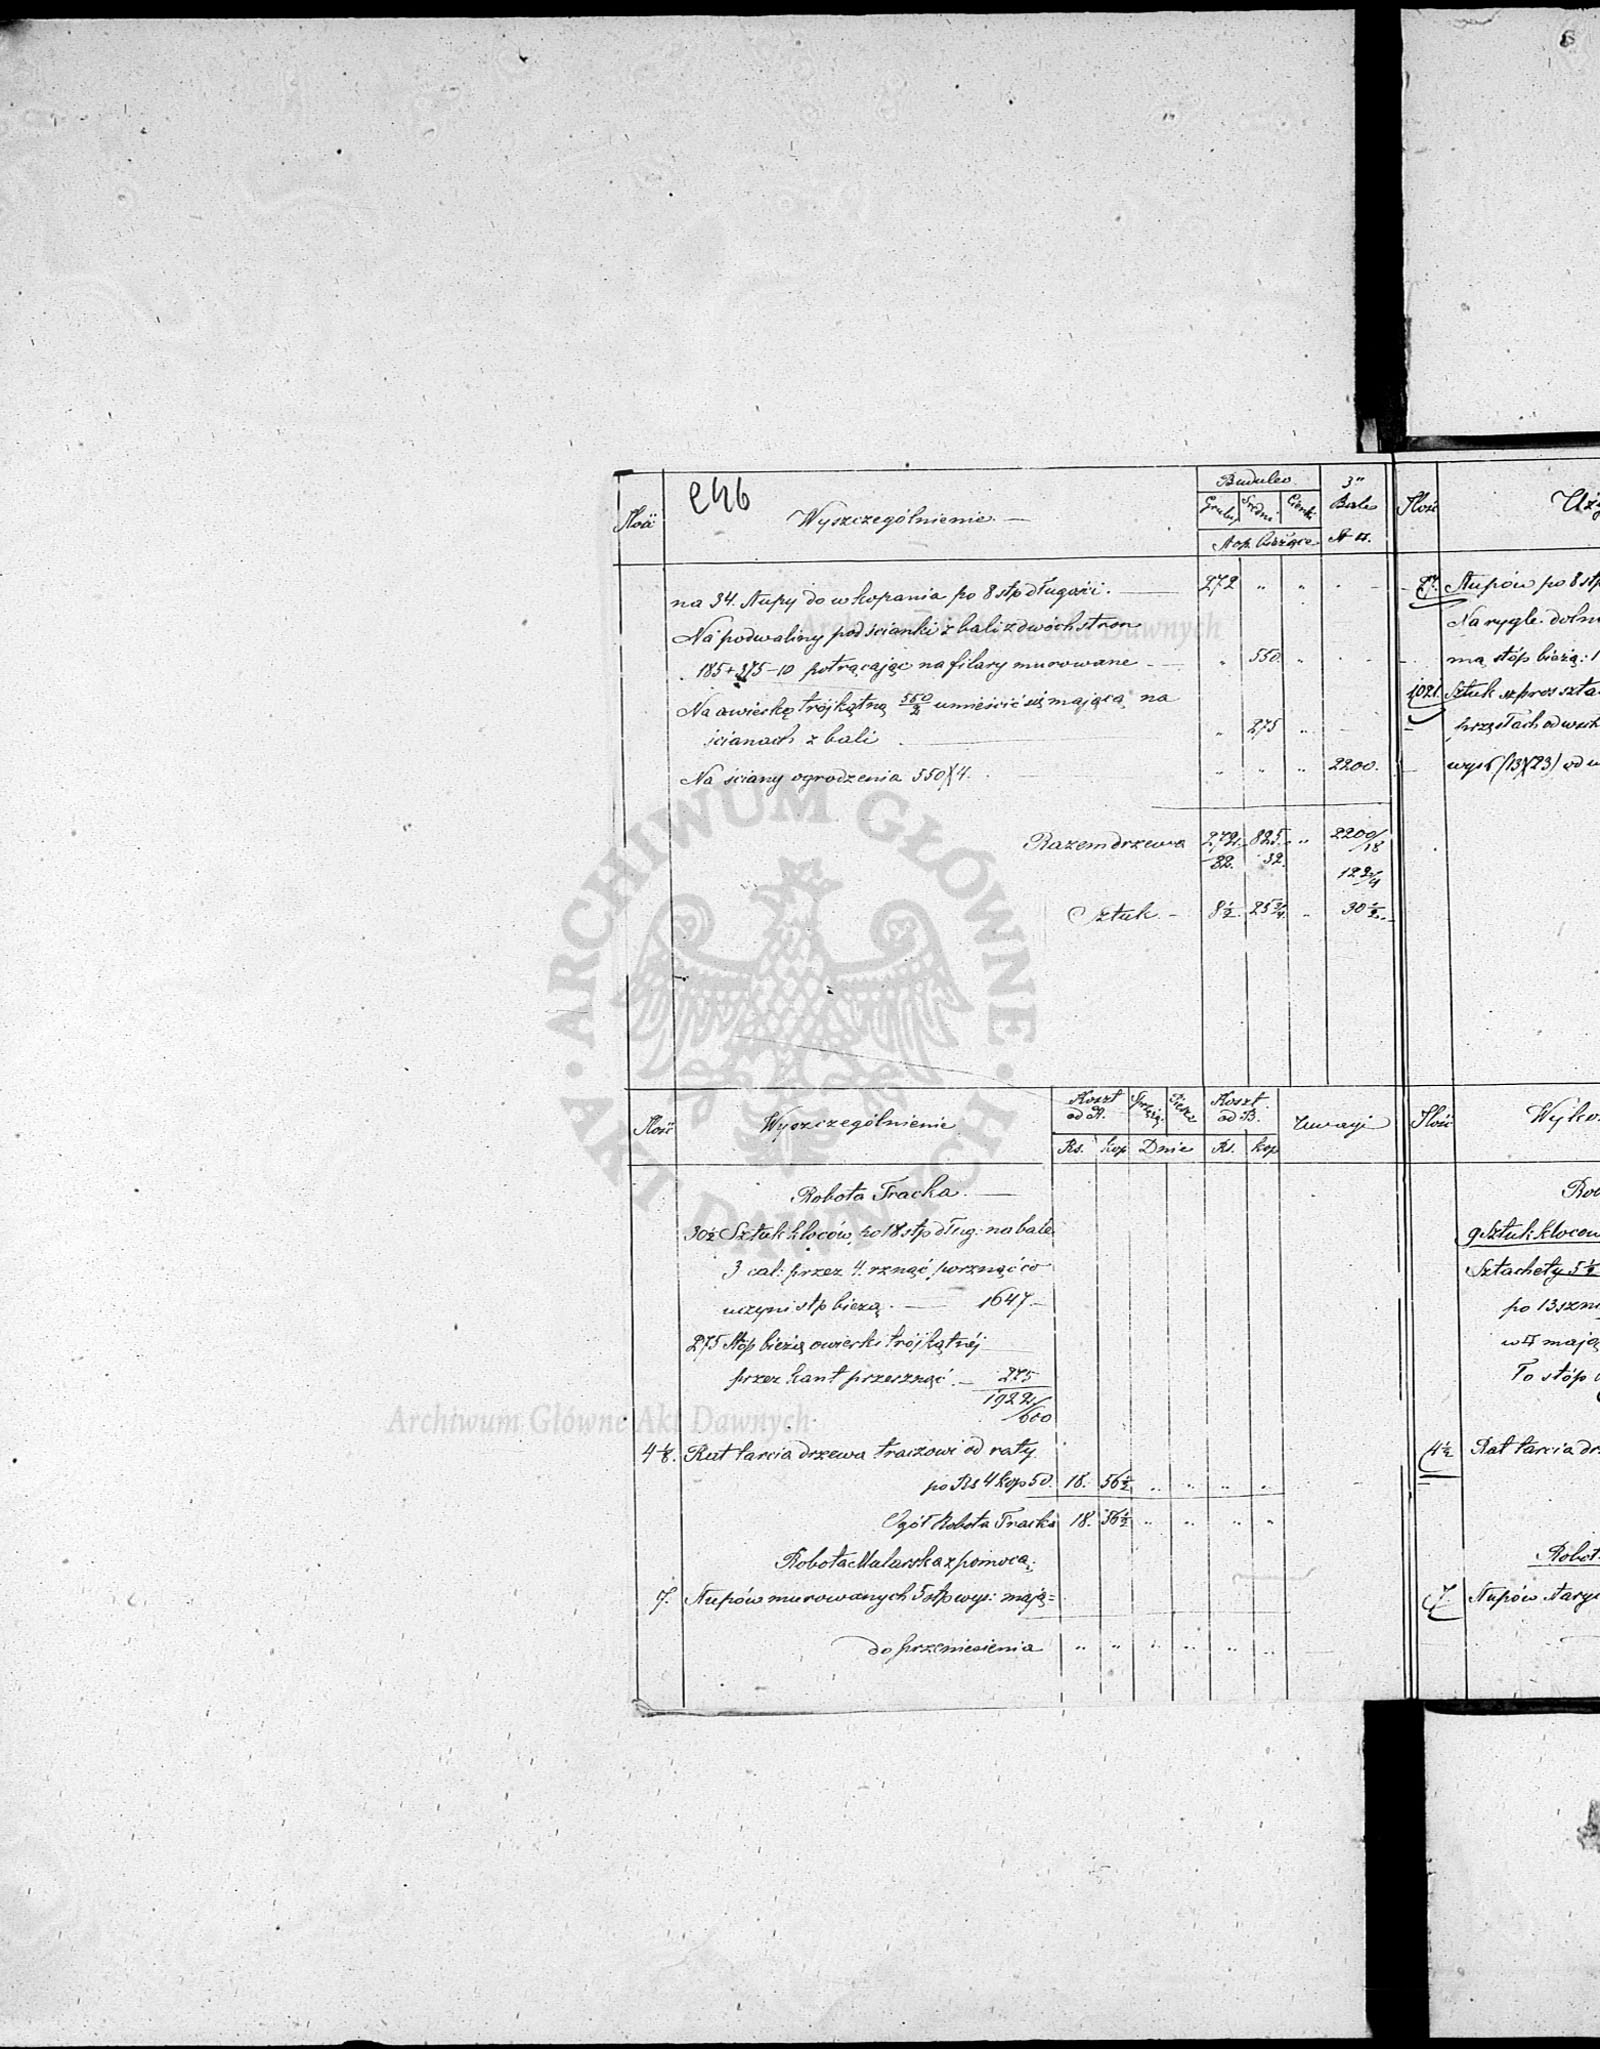 246
Ilość Wyszczególnienie. — Budulec 3" Bale
Gruby Średni Cienki
Stop. Bieżące St □.
na 34. słupy do wkopania po 8 stp długości. — 272 " " " -
Na podwaliny pod ścianki z bali z dwóch stron
185+375-10 potrącając na filary murowane - " 550. "
Na ćwierkę trójkątną 550/2 umieścić się mającą na
ścianach z bali — " 275 "
Na ściany ogrodzenia 550X4. " " " 2200.
Razem drzewa 272. 825. " 2200/18
32. 32. 122/4
Sztuk. - 8½ 25¾ " 30½.
Ilość Wyszczególnienie Koszt od A. Sprzęż. Piesze Koszt od B. Uwagi
Rs. kop Dnie Rs. kop
Robota Tracka. —
30½ Sztuk kloców, po 18 stp dług: na bale
3 cal: przez 4. rznąć, porznąć co
uczyni stp bieżą. — 1647 -
275 Stóp bieżą ćwierki trójkątnéj
przez kant przerznąć. - 275
1922/600
4⅛. Rat tarcia drzewa traczowi od raty
po Rs 4 kop 50. 18. 56½ " " " "
Ogół Robota Tracka 18. 56½ " " " "
Robota Malarska z pomocą.
7. Słupów murowanych 5 stp wys: mają=
do przeniesienia " " " " " "
Ilość
27. Słupów po 8 stp
Na rygle. doln
mą stóp bieżą: 1
1021. Sztuk szpros szta
przęsłach
wys 5 (13X23) od
Ilość Wyko
9 Sztuk kloców
Sztachety 5½
po 13
w □ mają
To stóp
4½ Rat tarcia drz
Robot
7. Słupów stary
Archiwum Główne Akt Dawnych
ARCHIWUM GŁÓWNE AKT DAWNYCH
Archiwum Główne Akt Dawnych